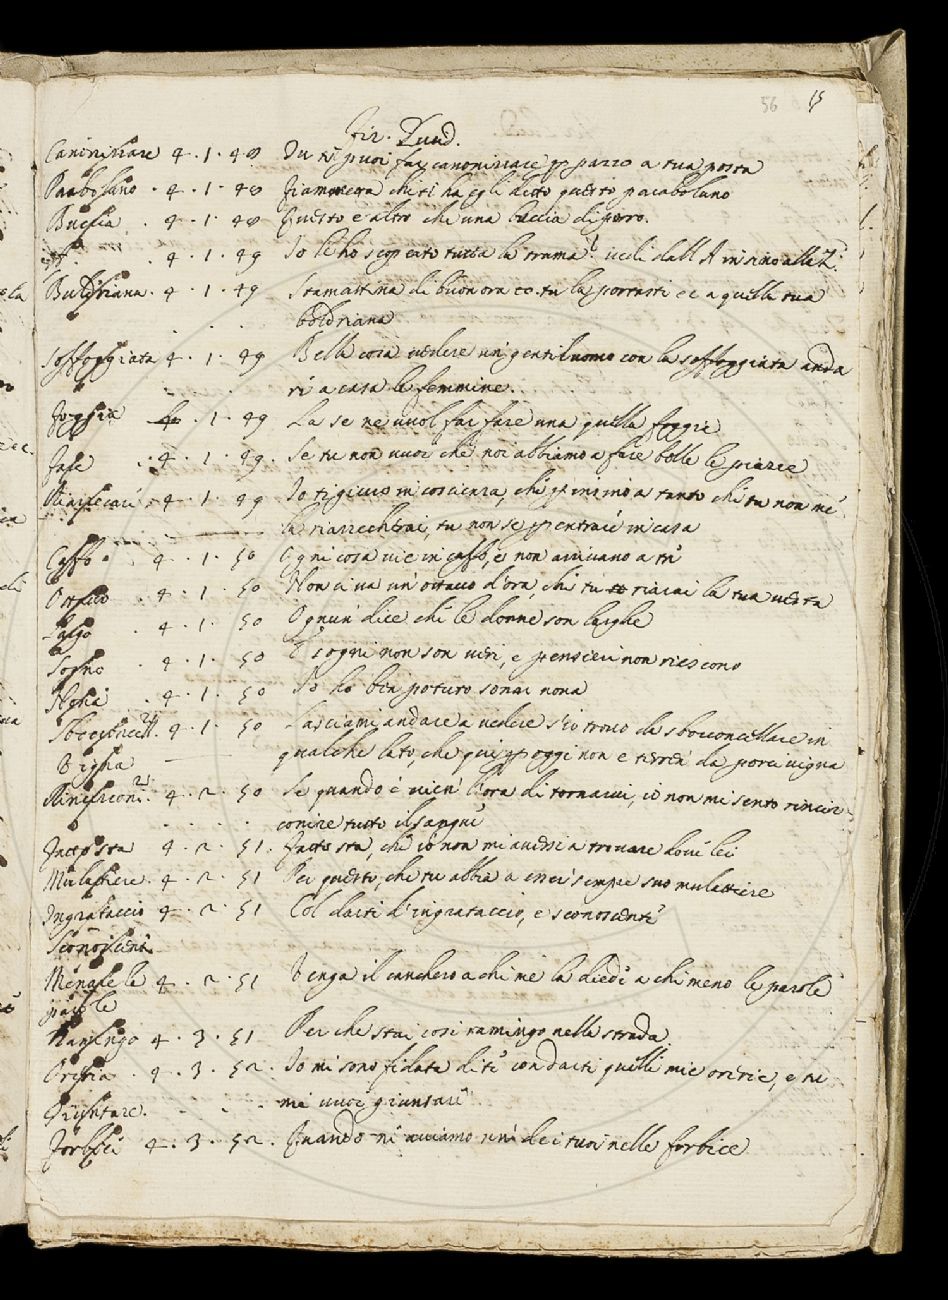 56 15
Fir. Lucid.
Canonizare 4 · 1 · 48 Du ti puoi far canonizzare p pazzo a tua posta
Parabolano · 4 · 1 · 48 Fiammetta chi ti ha egli detto questo parabolano
Buccia · 4 · 1 · 48 Questo e altro che una buccia di porro.
A. · 4 · 1 · 49 Io li ho scoperto tutta la trama uedi dall A insino alla Z.
Buldriana · 4 · 1 · 49 Stamattina di buon ora co. tu la portasti a quella tua
boldriana
Soffoggiata 4 · 1 · 49 Bella cosa uedere un gentiluomo con la soffoggiata anda
re a casa le femmine.
Foggia 4 · 1 · 49 La se ne uuol far fare una a quella foggia
Fare · 4 · 1 · 49 Se tu non uuoi che noi abbiamo a fare belle le piazze
4 · 1 · 49 Io ti giuro in coscienza, che p insino a tanto che tu non me
la riarrecherai, tu non se p entrare in casa
Caffo 4 · 1 · 50 Ogni cosa uie in caffo, e non arrivano a tre
Ottavo 4 · 1 · 50 Non ci va un ottavo d'ora, che tu riarai la tua uesta
Largo · 4 · 1 · 50 Ognun dice che le donne son larghe
Sogno · 4 · 1 · 50 E i sogni non son ueri, e i pensieri non riescono
Nona · 4 · 1 · 50 Io ho ben potuto sonar nona
Sbocconcell. 4 · 1 · 50 Lasciami andare a uedere s'io trouo da sbocconcellare in
Vigna — qualche lato, che qui p oggi non e terren da porci uigna
Rinciconi. 4 · 2 · 50 Se quando e uien l'ora di tornarui, io non mi sento rincer
conire tutto il sangue
Fatto sta 4 · 2 · 51 Fatto sta, che io non mi auuenni a trouare loui lei
Mulattiere · 4 · 2 · 51 Per questo, che tu abbia a esser sempre suo mulattiere
Ingrataccio 4 · 2 · 51 Col darti d'ingrataccio, e sconoscente
Sconoscente
Menare le 4 · 2 · 51 Venga il canchero a chi me la diede a chi meno le parole
parole
Ramingo 4 · 3 · 51 Per che stai cosi ramingo nella strada
4 · 3 · 52 Io mi sono fidata di te con darti quelle mie, e tu
Giuntare · mi uuoi giuntare
Forbici 4 · 3 · 52 Quando ni auiamo uno de i tuoi nelle forbice